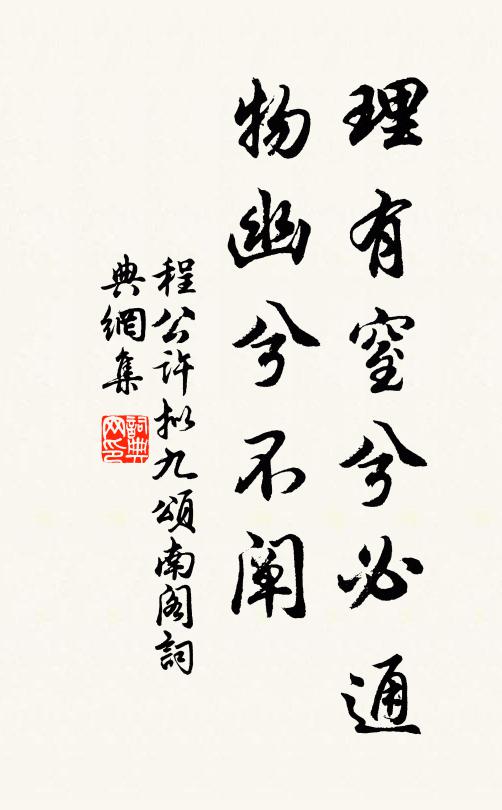 理有窒兮必通
物幽兮不阐
程公许拟九頌南阁詞
典網集
詞典网印